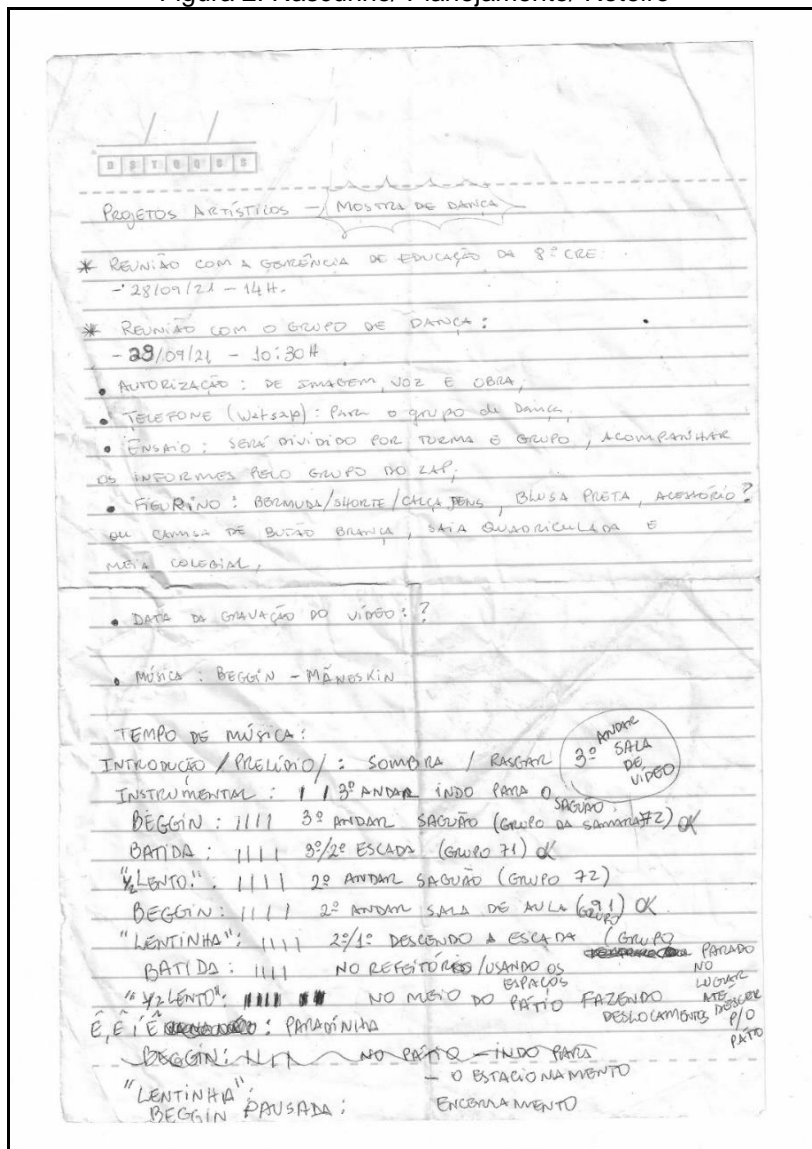 Figura 2: Rascunho/ Planejamento/ Roteiro
D S T Q Q S S
PROJETOS ARTÍSTICOS - MOSTRA DE DANÇA
* REUNIÃO COM A GERÊNCIA DE EDUCAÇÃO DA 8ª CRE:
- 28/09/21 - 14H.
* REUNIÃO COM O GRUPO DE DANÇA:
- 29/09/21 - 10:30H
• AUTORIZAÇÃO: DE IMAGEM, VOZ E OBRA,
• TELEFONE (Watsap): PARA o grupo de Dança,
• ENSAIO: SERÁ DIVIDIDO POR TURMA E GRUPO, ACOMPANHAR
OS INFORMES PELO GRUPO DO ZAP;
• FIGURINO: BERMUDA/SHORTE/CALÇA JENS, BLUSA PRETA, ACESSÓRIO?
OU CAMISA DE BUTÃO BRANCA, SAIA QUADRICULADA E
MEIA COLEGIAL,
• DATA DA GRAVAÇÃO DO VÍDEO: ?
• MÚSICA: BEGGIN - MÃNESKIN
TEMPO DE MÚSICA:
INTRODUÇÃO / PRELÚDIO/: SOMBRA / RASGAR 3º ANDAR SALA DE VIDEO
INSTRUMENTAL: | | 3º ANDAR INDO PARA O SAGUÃO
BEGGIN: |||| 3º ANDAR SAGUÃO (GRUPO DA SAMARA #72) OK
BATIDA: |||| 3º/2º ESCADA (GRUPO 71) OK
"1/2 LENTO": |||| 2º ANDAR SAGUÃO (GRUPO 72)
BEGGIN: |||| 2º ANDAR SALA DE AULA (GRUPO 91) OK
"LENTINHA": |||| 2º/1º DESCENDO A ESCADA (GRUPO PARADO NO LUGAR ATE DESCER P/O PATIO
BATIDA: |||| NO REFEITÓRIO/USANDO OS ESPAÇOS
"1/2 LENTO": |||| NO MEIO DO PÁTIO FAZENDO DESLOCAMENTOS
Ê, Ê, Ê: PARADINHA
BEGGIN: |||| NO PÁTIO - INDO PARA
- O ESTACIONAMENTO
"LENTINHA":
BEGGIN PAUSADA: ENCERRAMENTO